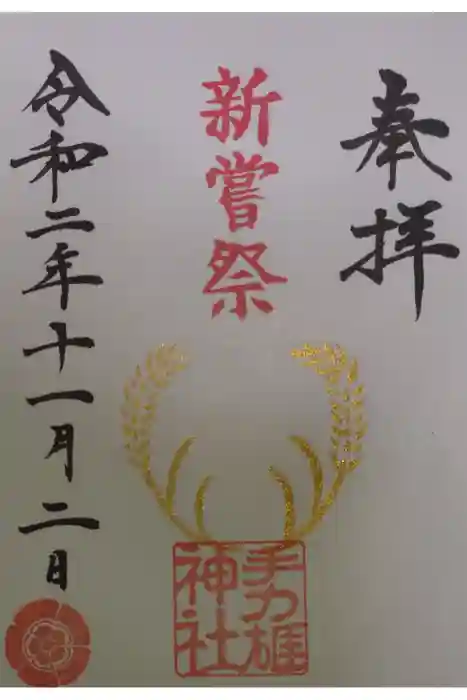 奉拝
新嘗祭
手力雄
神社
令和二年十一月二日